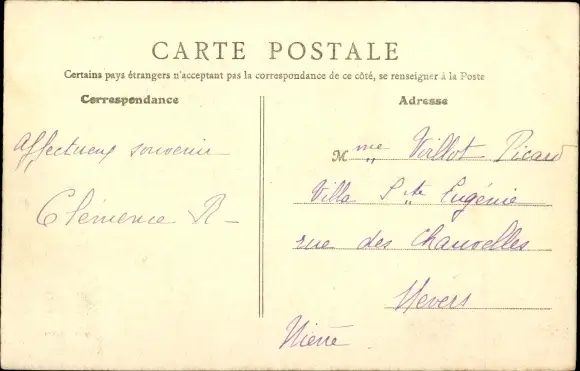 CARTE POSTALE
Certains pays étrangers n'acceptant pas la correspondance de ce côté, se renseigner à la Poste
Correspondance
Affectueux souvenir
Clémence R
Adresse
Mme Voillot Picard
Villa Ste Eugénie
rue des Chauvelles
Nevers
Nièvre